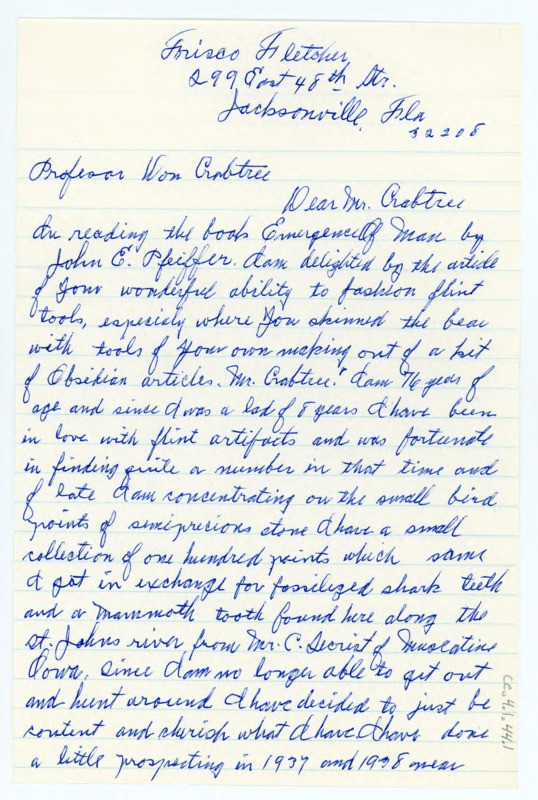 Frisco Fletcher
299 East 48th Str.
Jacksonville, Fla
32208
Profesor Don Crabtree
Dear Mr. Crabtree
In reading the book Emergence Of Man by
John E. Pfeiffer. I am delighted by the article
of your wonderful ability to fashion flint
tools, especialy where you skinned the bear
with tools of your own making out of a kit
of Obsidian articles. Mr. Crabtree! I am 76 years of
age and since I was a lad of 8 years I have been
in love with flint artifacts and was fortunate
in finding quite a number in that time and
of late I am concentrating on the small bird
points of semiprecious stone I have a small
collection of one hundred points which some
I got in exchange for fossilized shark teeth
and a Mammoth tooth found here along the
St. Johns river from Mr. C. Secrist of Muscatine
Iowa, since I am no longer able to get out
and hunt around I have decided to just be
content and cherish what I have. I have done
a little prospecting in 1937 and 1938 near